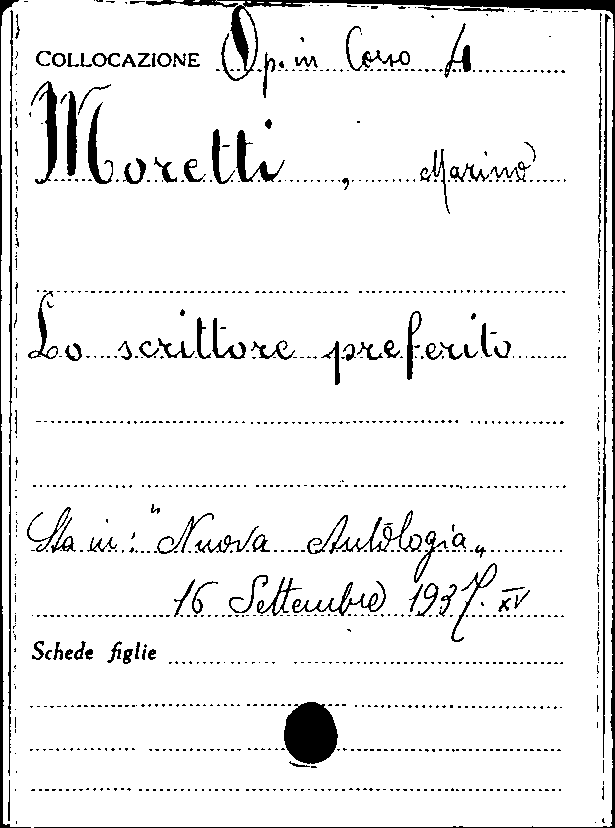 COLLOCAZIONE Op. in Corso 4
Moretti, Marino
Lo scrittore preferito
Sta in: "Nuova Antologia„
16 Settembre 1937. XV
Schede figlie